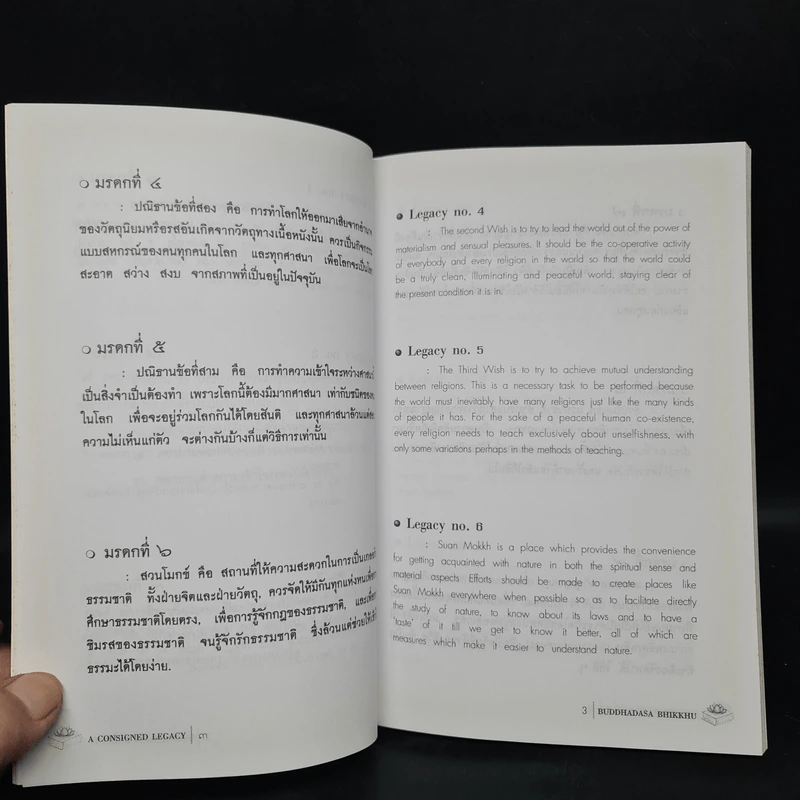 ❍ มรดกที่ ๔
: ปณิธานข้อที่สอง คือ การทำโลกให้ออกมาเสียจากอำนาจ
ของวัตถุนิยมหรือรสอันเกิดจากวัตถุทางเนื้อหนังนั้น ควรเป็นกิจกรรม
แบบสหกรณ์ของคนทุกคนในโลก และทุกศาสนา เพื่อโลกจะเป็นโลก
สะอาด สว่าง สงบ จากสภาพที่เป็นอยู่ในปัจจุบัน
❍ มรดกที่ ๕
: ปณิธานข้อที่สาม คือ การทำความเข้าใจระหว่างศาสนา
เป็นสิ่งจำเป็นต้องทำ เพราะโลกนี้ต้องมีมากศาสนา เท่ากับชนิดของ
ในโลก เพื่อจะอยู่ร่วมโลกกันได้โดยสันติ และทุกศาสนาล้วนแต่
ความไม่เห็นแก่ตัว จะต่างกันบ้างก็แต่วิธีการเท่านั้น
❍ มรดกที่ ๖
: สวนโมกข์ คือ สถานที่ให้ความสะดวกในการเป็นเกลอ
ธรรมชาติ ทั้งฝ่ายจิตและฝ่ายวัตถุ. ควรจัดให้มีกันทุกแห่งหน
ศึกษาธรรมชาติโดยตรง, เพื่อการรู้จักกฎของธรรมชาติ, และเพื่อ
ชิมรสของธรรมชาติ จนรู้จักรักธรรมชาติ ซึ่งล้วนแต่ช่วยให้
ธรรมะได้โดยง่าย.
A CONSIGNED LEGACY | ๓
● Legacy no. 4
: The second Wish is to try to lead the world out of the power of
materialism and sensual pleasures. It should be the co-operative activity
of everybody and every religion in the world so that the world could
be a truly clean, illuminating and peaceful world, staying clear of
the present condition it is in.
● Legacy no. 5
: The Third Wish is to try to achieve mutual understanding
between religions. This is a necessary task to be performed because
the world must inevitably have many religions just like the many kinds
of people it has. For the sake of a peaceful human co-existence,
every religion needs to teach exclusively about unselfishness, with
only some variations perhaps in the methods of teaching.
● Legacy no. 6
: Suan Mokkh is a place which provides the convenience
for getting acquainted with nature in both the spiritual sense and
material aspects Efforts should be made to create places like
Suan Mokkh everywhere when possible so as to facilitate directly
the study of nature, to know about its laws and to have a
'taste' of it till we get to know it better, all of which are
measures which make it easier to understand nature.
3 | BUDDHADASA BHIKKHU